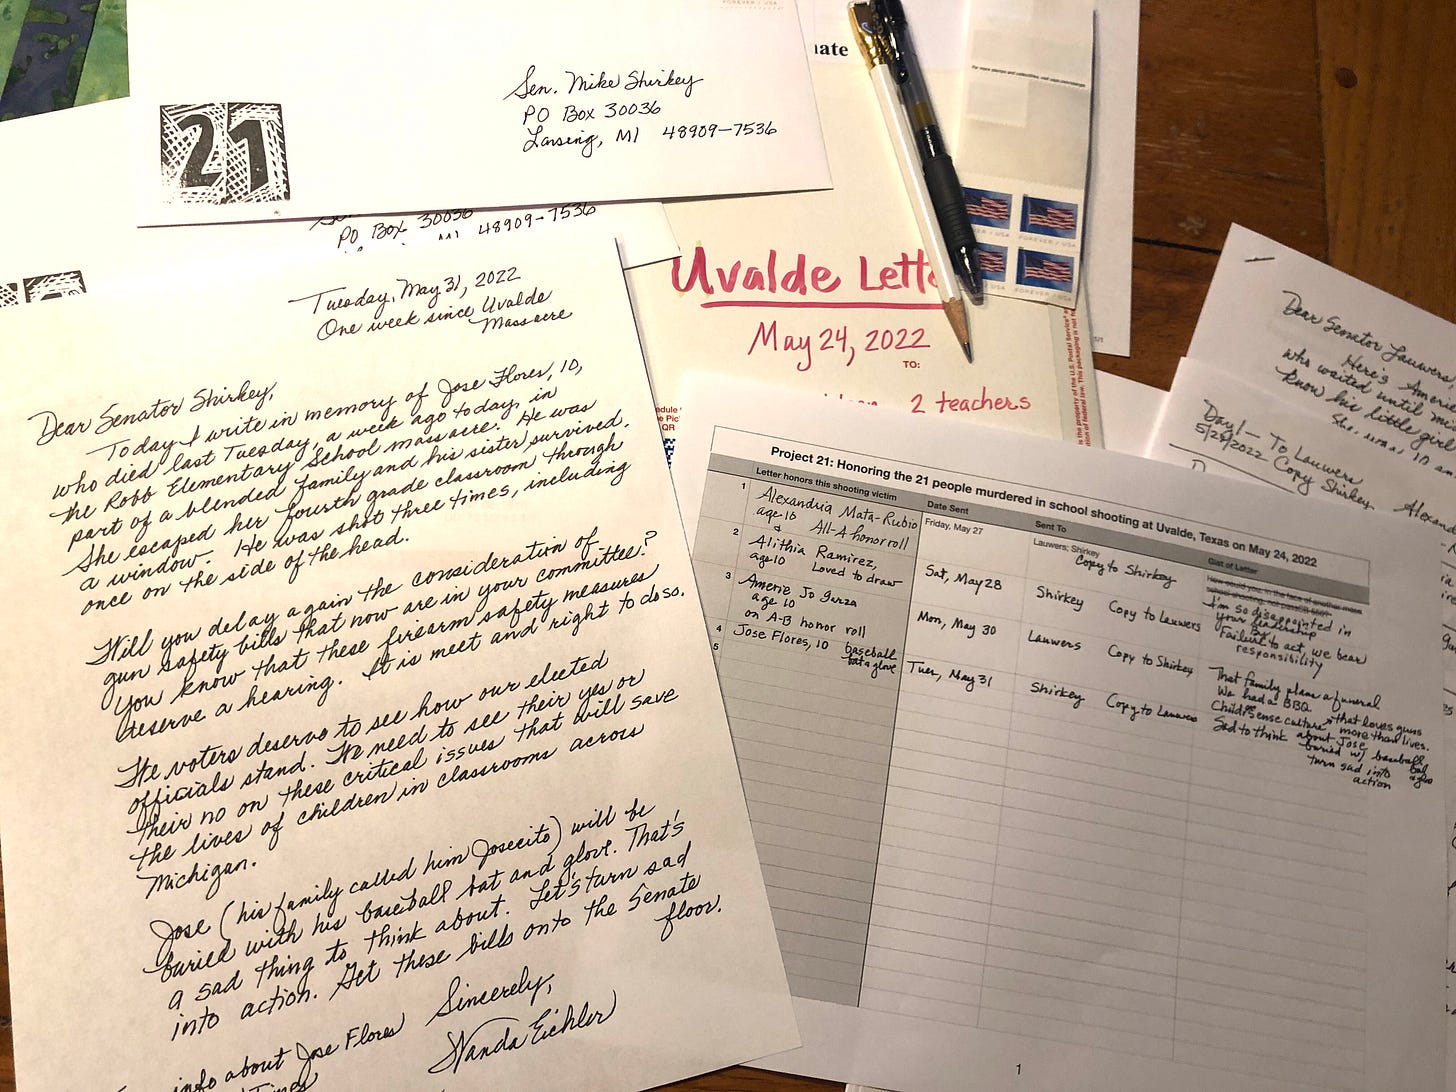 FOREVER / USA
21
Sen. Mike Shirkey
PO Box 30036
Lansing, MI 48909-7536
PO Box 30036
MI 48909-7536
Tuesday, May 31, 2022
One week since Uvalde
Massacre
Dear Senator Shirkey,
Today I write in memory of Jose Flores, 10,
who died last Tuesday, a week ago today, in
the Robb Elementary School massacre. He was
part of a blended family and his sister survived.
She escaped her fourth grade classroom through
a window. He was shot three times, including
once on the side of the head.
Will you delay again the consideration of
gun safety bills that now are in your committee?
You know that these firearm safety measures
deserve a hearing. It is meet and right to do so.
The voters deserve to see how our elected
officials stand. We need to see their yes or
their no on these critical issues that will save
the lives of children in classrooms across
Michigan.
Jose (his family called him Josecito) will be
buried with his baseball bat and glove. That's
a sad thing to think about. Let's turn sad
into action. Get these bills onto the Senate
floor.
Sincerely,
Wanda Eichler
info about Jose Flores
Times
nate
FOREVER / USA
FOREVER / USA
Uvalde Lette
May 24, 2022
TO:
2 teachers
Project 21: Honoring the 21 people murdered in school shooting at Uvalde, Texas on May 24, 2022
Letter honors this shooting victim Date Sent Sent To Gist of Letter
1 Alexandria Mata-Rubio Friday, May 27 Lauwers; Shirkey
age 10 All-A honor roll Copy to Shirkey
&
2 Alithia Ramirez, Sat, May 28 Shirkey Copy to Lauwers I'm so disappointed in
age 10 Loved to draw your leadership
3 Amerie Jo Garza Mon, May 30 Lauwers Copy to Shirkey Failure to act, we bear
age 10 responsibility
on A-B honor roll
4 Jose Flores, 10 baseball Tues, May 31 Shirkey Copy to Lauwers That family plans a funeral
bat & glove We had a BBQ
5 culture that loves guns
more than lives.
Sad to think about Jose
buried w/ baseball bat
turn sad into
action
1
Dear Senator Lauwers,
Here's Ameri
who waited until mi
know his little girl
She was 10 an
Day 1 — To Lauwers
5/27/2022 Copy Shirkey